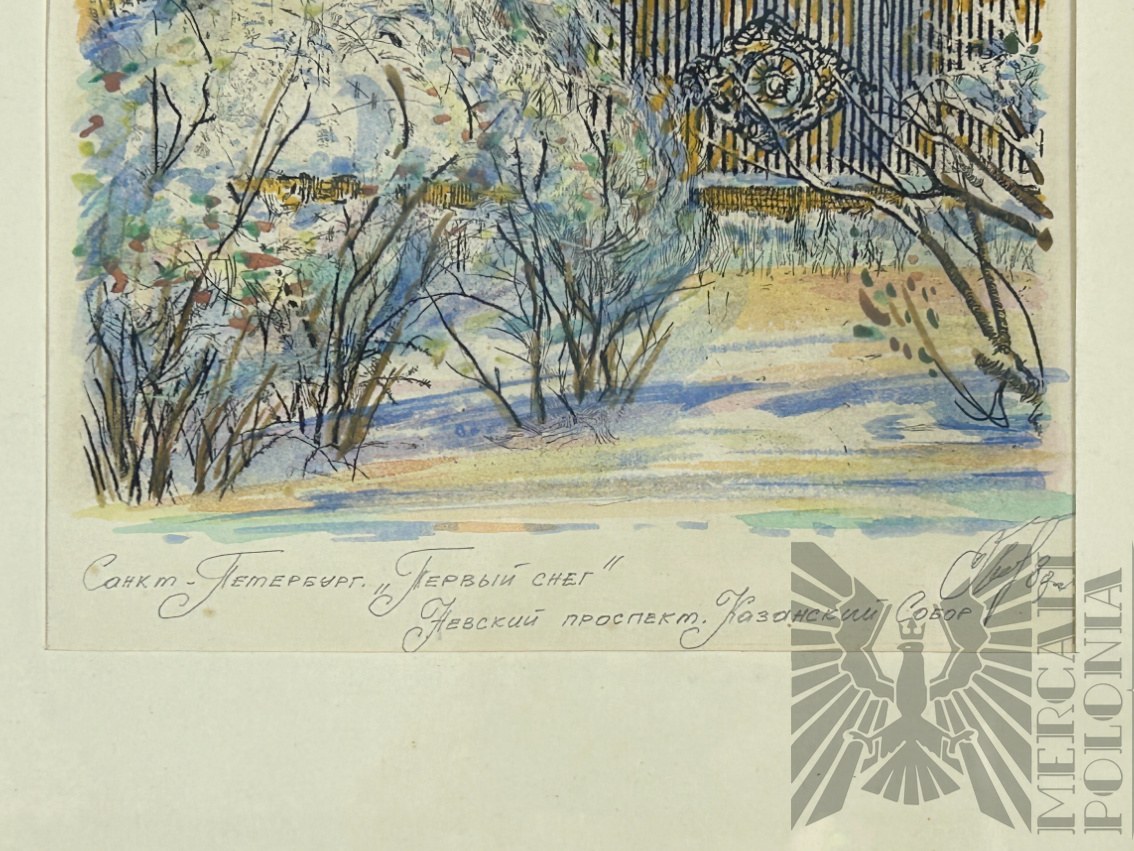 Санкт-Петербург. „Первый снег”
Невский проспект. Казанский Собор
MERCATI
POLONIA